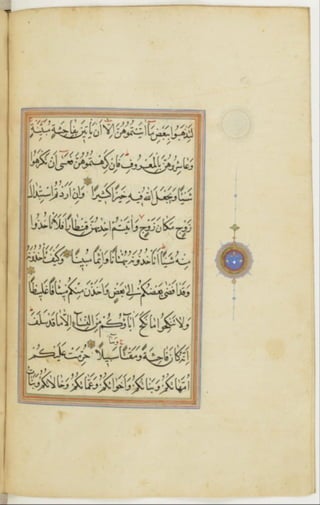 لِتَذْهَبُوا بِبَعْضِ مَا آتَيْتُمُوهُنَّ إِلَّا أَنْ يَأْتِينَ بِفَاحِشَةٍ مُبَيِّنَةٍ
وَعَاشِرُوهُنَّ بِالْمَعْرُوفِ فَإِنْ كَرِهْتُمُوهُنَّ فَعَسَى أَنْ تَكْرَهُوا
شَيْئًا وَيَجْعَلَ اللَّهُ فِيهِ خَيْرًا كَثِيرًا وَإِنْ أَرَدْتُمُ اسْتِبْدَالَ
زَوْجٍ مَكَانَ زَوْجٍ وَآتَيْتُمْ إِحْدَاهُنَّ قِنْطَارًا فَلَا تَأْخُذُوا
مِنْهُ شَيْئًا أَتَأْخُذُونَهُ بُهْتَانًا وَإِثْمًا مُبِينًا وَكَيْفَ تَأْخُذُونَهُ
وَقَدْ أَفْضَى بَعْضُكُمْ إِلَى بَعْضٍ وَأَخَذْنَ مِنْكُمْ مِيثَاقًا غَلِيظًا
وَلَا تَنْكِحُوا مَا نَكَحَ آبَاؤُكُمْ مِنَ النِّسَاءِ إِلَّا مَا قَدْ سَلَفَ
إِنَّهُ كَانَ فَاحِشَةً وَمَقْتًا وَسَاءَ سَبِيلًا حُرِّمَتْ عَلَيْكُمْ
أُمَّهَاتُكُمْ وَبَنَاتُكُمْ وَأَخَوَاتُكُمْ وَعَمَّاتُكُمْ وَخَالَاتُكُمْ وَبَنَاتُ